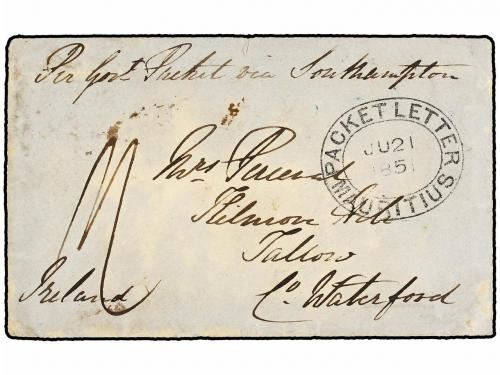 Per Govt Packet via Southampton
PACKET LETTER
JU 21
1851
MAURITIUS
Mrs
Hill
Tallow
Ireland
Co. Waterford